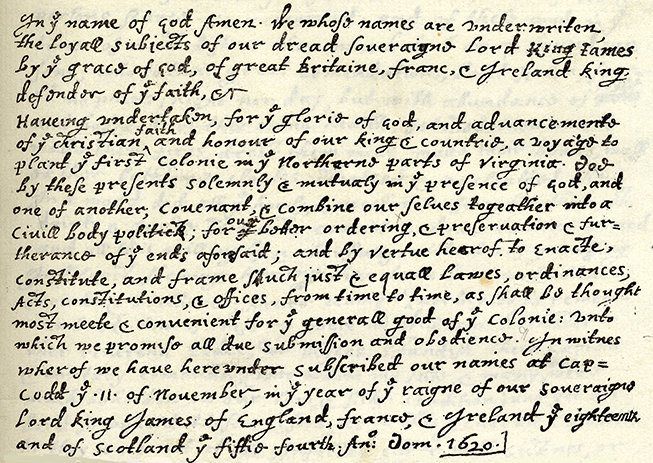 In yͤ name of god Amen. We whose names are underwriten,
the loyall subjects of our dread soveraigne Lord King James
by yͤ grace of god, of great Britaine, franc, & Ireland king,
defender of yͤ faith, &c
Haveing undertaken, for yͤ glorie of god, and advancemente
of yͤ christian ^faith and honour of our king & countrie, a voyage to
plant yͤ first colonie in yͤ Northerne parts of Virginia. Doe
by these presents solemnly & mutualy in yͤ presence of god, and
one of another, covenant, & combine our selves togeather into a
Civill body politick; for our better ordering, & preservation & fur=
therance of yͤ ends aforesaid; and by vertue hearof to enacte,
constitute, and frame shuch just & equall lawes, ordinances,
Acts, constitutions, & offices, from time to time, as shall be thought
most meete & convenient for yͤ generall good of yͤ Colonie: unto
which we promise all due submission and obedience. In witnes
wherof we have hereunder subscribed our names at Cap=
Codd yͤ .11. of November, in yͤ year of yͤ raigne of our soveraigne
Lord king James of England, france, & Ireland yͤ eighteenth
and of Scotland yͤ fiftie fourth. Anͦ: Dom. 1620.]